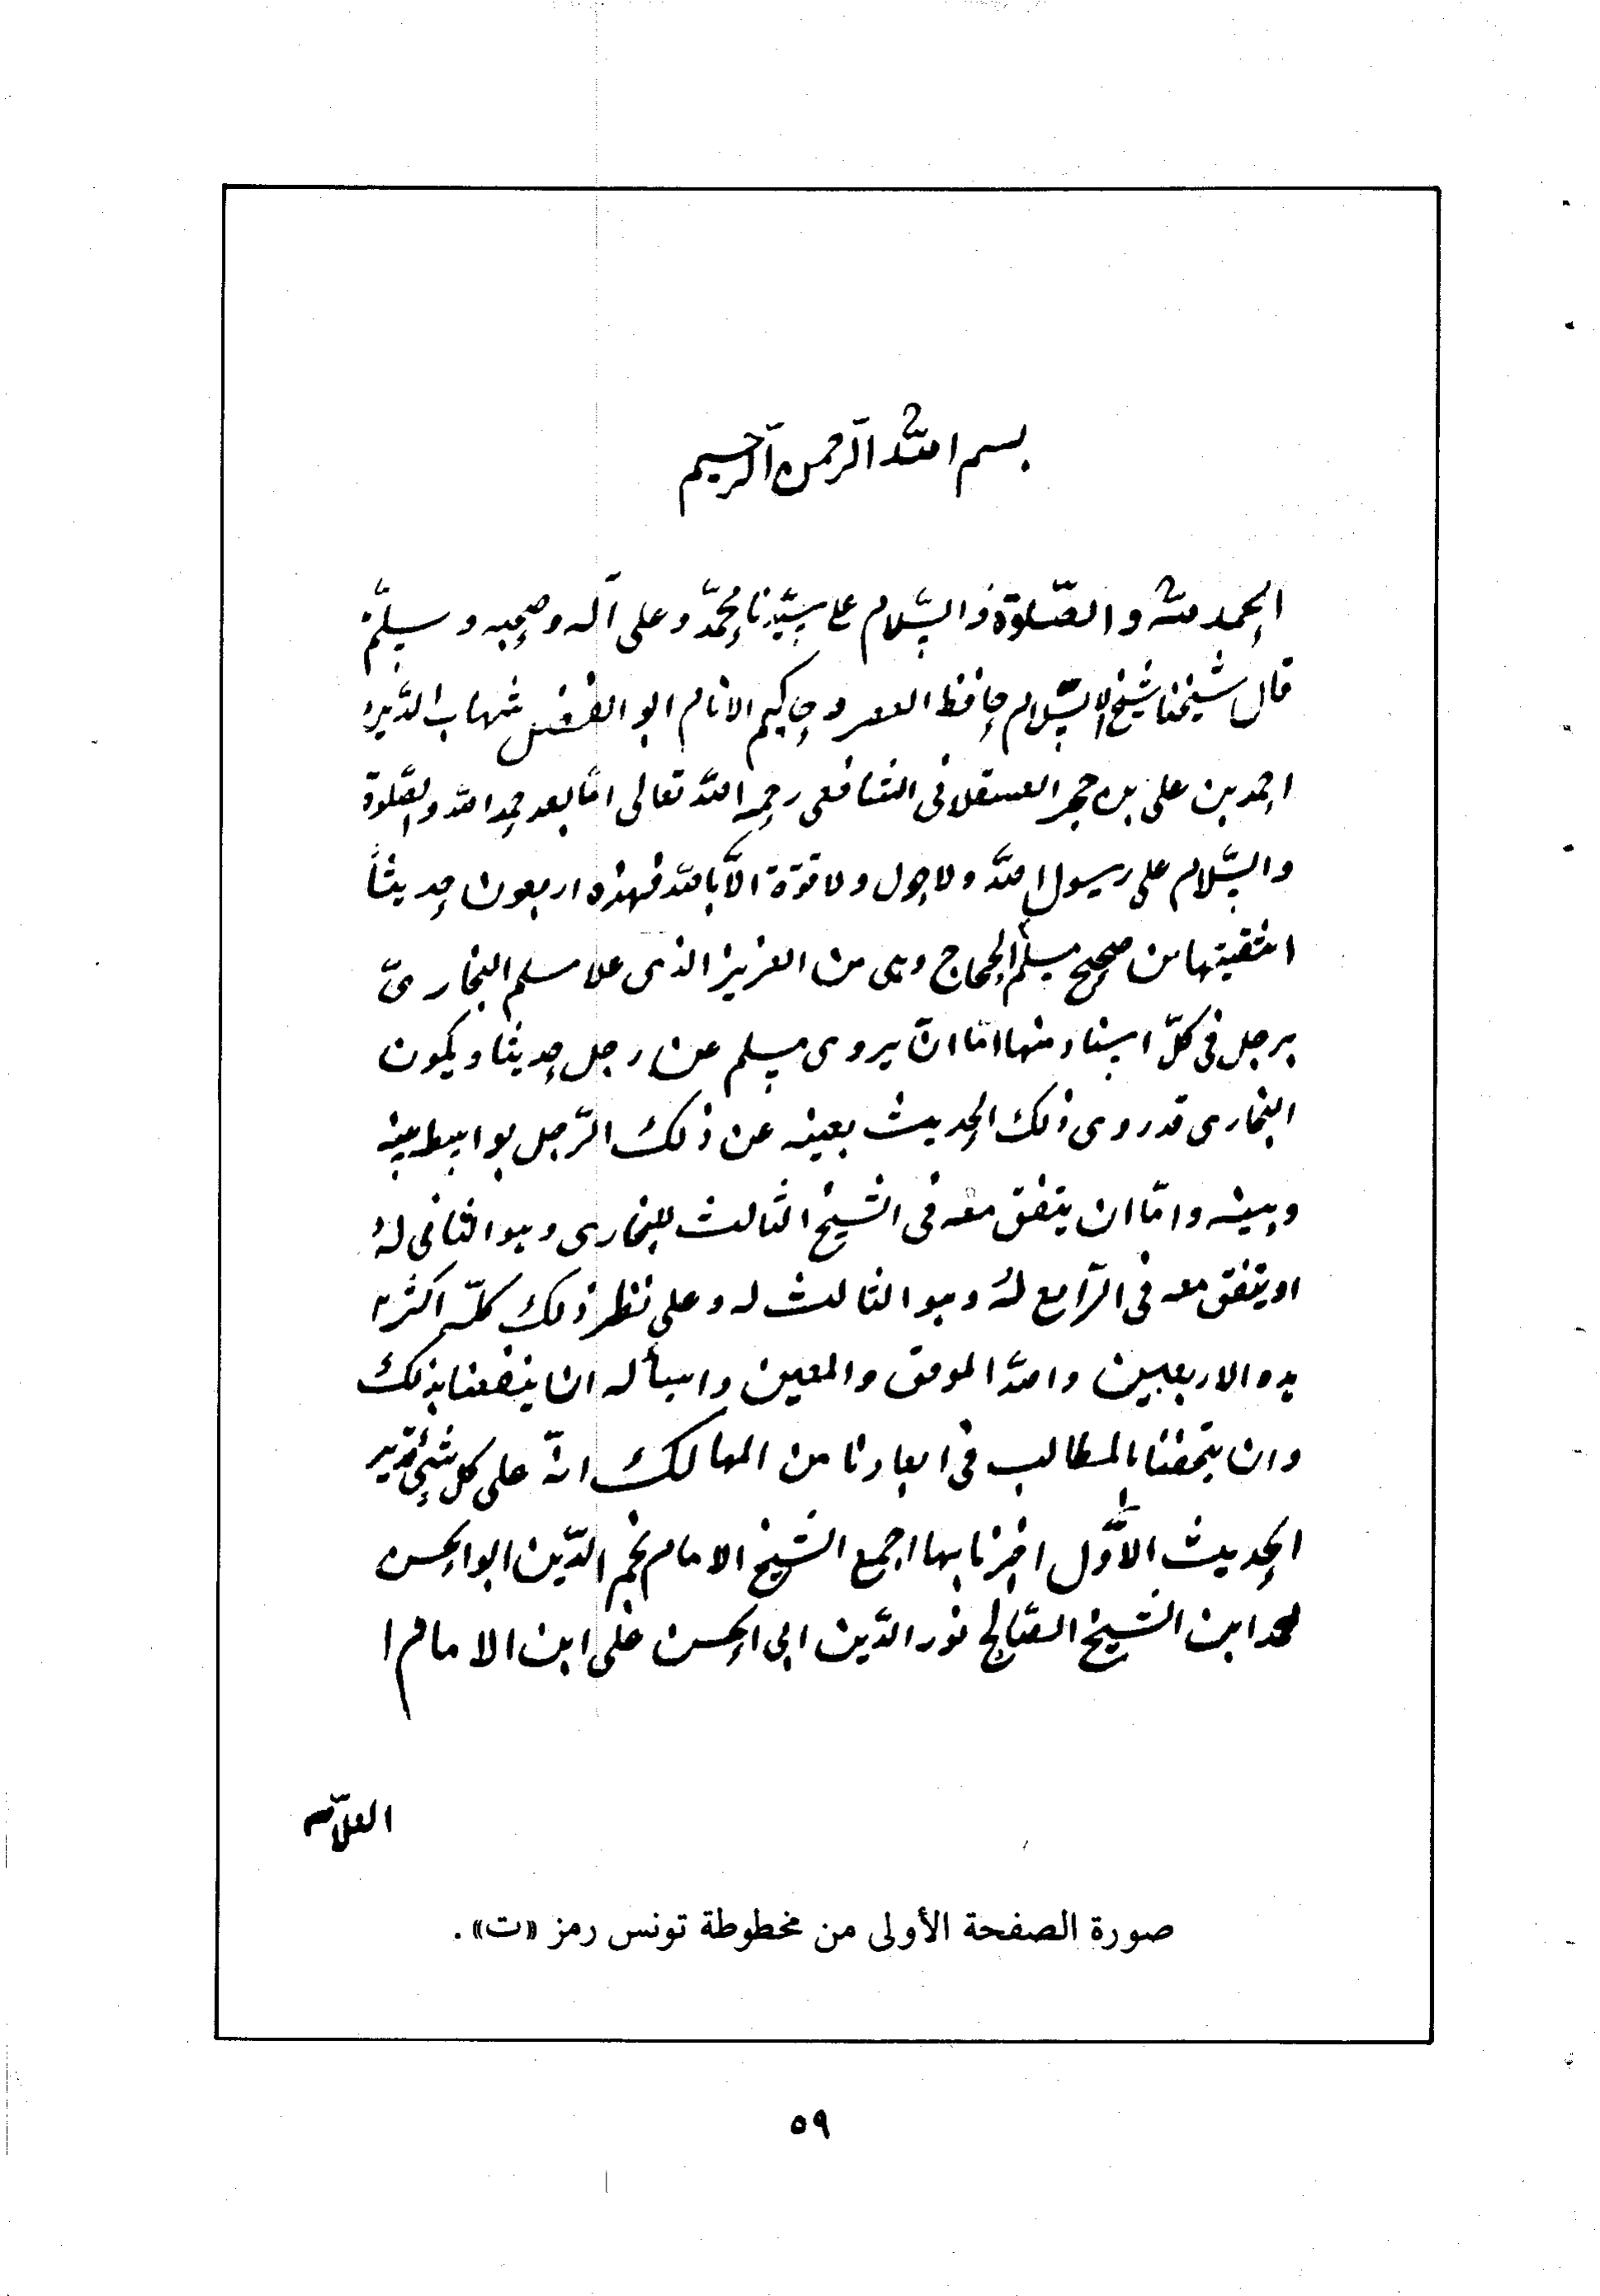 بسم الله الرحمن الرحيم
الحمد لله والصّلوة والسّلام على سيّدنا محمّد وعلى آله وصحبه وسلّم
قال شيخنا شيخ الاسلام حافظ العصر وحاكم الانام ابو الفضل شهاب الدّين
احمد بن على بن حجر العسقلانى الشافعى رحمه الله تعالى امّا بعد حمد الله والصّلوة
والسّلام على رسول الله ولا حول ولا قوّة الّا بالله فهذه اربعون حديثاً
انتقيتها من صحيح مسلم الحجاج وهى من العزيز الذى علا مسلم البخارىّ
برجل فى كلّ اسناد منها امّا ان يروى مسلم عن رجل حديثا ويكون
البخارى قد روى ذلك الحديث بعينه عن ذلك الرّجل بواسطة بينه
وبينه وامّا ان يتفق معه فى الشيخ الثالث للبخارى وهو الثانى له
او يتفق معه فى الرّابع له وهو الثالث له وعلى نظر ذلك كلّه اكثر
هده الاربعين والله الموفق والمعين واسأله ان ينفعنا بذلك
وان يتحفنا بالمطالب فى ابعادنا من المهالك انّه على كل شئ قدير
الحديث الأوّل اخبرنا بها اجمع الشيخ الامام نجم الدّين ابو الحسن
محمد ابن الشيخ الصّالح نور الدّين ابى الحسن على ابن الامام ا
العلّامه
صورة الصفحة الأولى من مخطوطة تونس رمز «ت».
٥٩